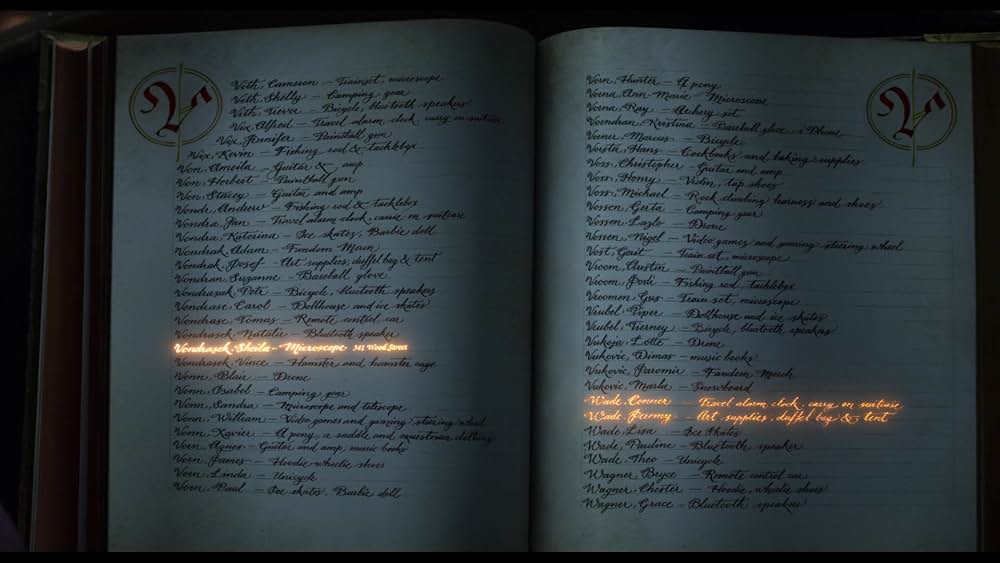 V
Vith, Cameron – Trainset, microscope
Vith, Shelly – Camping gear
Vith, Trevor – Bicycle, bluetooth speakers
Vix, Alfred – Travel alarm clock, carry on suitcase
Vix, Jennifer – Paintball gun
Vix, Kevin – Fishing rod & tacklebox
Von, Ameila – Guitar & amp
Von, Herbert – Paintball gun
Von, Stacey – Guitar and amp
Vondr, Andrew – Fishing rod & tacklebox
Vondra, Jan – Travel alarm clock, carrie on suitcase
Vondra, Katarina – Ice skates, Barbie doll
Vondrak, Adam – Fandom Merch
Vondrak, Josef – Art supplies, duffel bag & tent
Vondran, Suzanne – Baseball glove
Vondrasak, Petr – Bicycle, bluetooth speakers
Vondrase, Carol – Dollhouse and ice skates
Vondrase, Tomas – Remote control car
Vondrasek, Natalie – Bluetooth speaker
Vondrasek, Sheila – Microscope 341 Wood Street
Vondrasek, Vince – Hamster and hamster cage
Vonn, Blair – Drone
Vonn, Isabel – Camping gear
Vonn, Sandra – Microscope and telescope
Vonn, William – Video games and gaming steering wheel
Vonn, Xavier – A pony, a saddle and equestrian clothing
Vorn, Agnes – Guitar and amp, music books
Vorn, James – Hoodie, wheelie shoes
Vorn, Linda – Unicycle
Vorn, Paul – Ice skates, Barbie doll
V
Vorn, Hunter – A pony
Voena, Ann Marie – Microscope
Voena, Ray – Archery set
Voendran, Kristina – Baseball glove, iPhone
Voener, Marcus – Bicycle
Vorsta, Hans – Cookbooks and baking supplies
Voss, Christopher – Guitar and amp
Voss, Henry – Violin, tap shoes
Voss, Michael – Rock climbing harness and shoes
Vossen, Gerta – Camping gear
Vossen, Lazlo – Drone
Vossen, Nigel – Video games and gaming steering wheel
Vost, Gert – Train set, microscope
Vroom, Austin – Paintball gun
Vroom, Jodi – Fishing rod, tacklebox
Vroomen, Gus – Train set, microscope
Vrubel, Piper – Dollhouse and ice skates
Vrubel, Tierney – Bicycle, bluetooth speakers
Vukoja, Lotte – Drone
Vukovic, Dimas – music books
Vukovic, Jaromir – Fandom Merch
Vukovic, Marla – Snowboard
Wade, Conner – Travel alarm clock, carry on suitcase
Wade, Jeremy – Art supplies, duffel bag & tent
Wade, Lisa – Ice Skates
Wade, Pauline – Bluetooth speaker
Wade, Theo – Unicycle
Wagner, Bryce – Remote control car
Wagner, Chester – Hoodie, wheelie shoes
Wagner, Grace – Bluetooth speakers